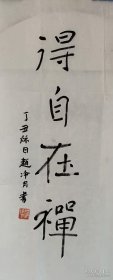 得自在禪
丁丑秋日趙冷月書